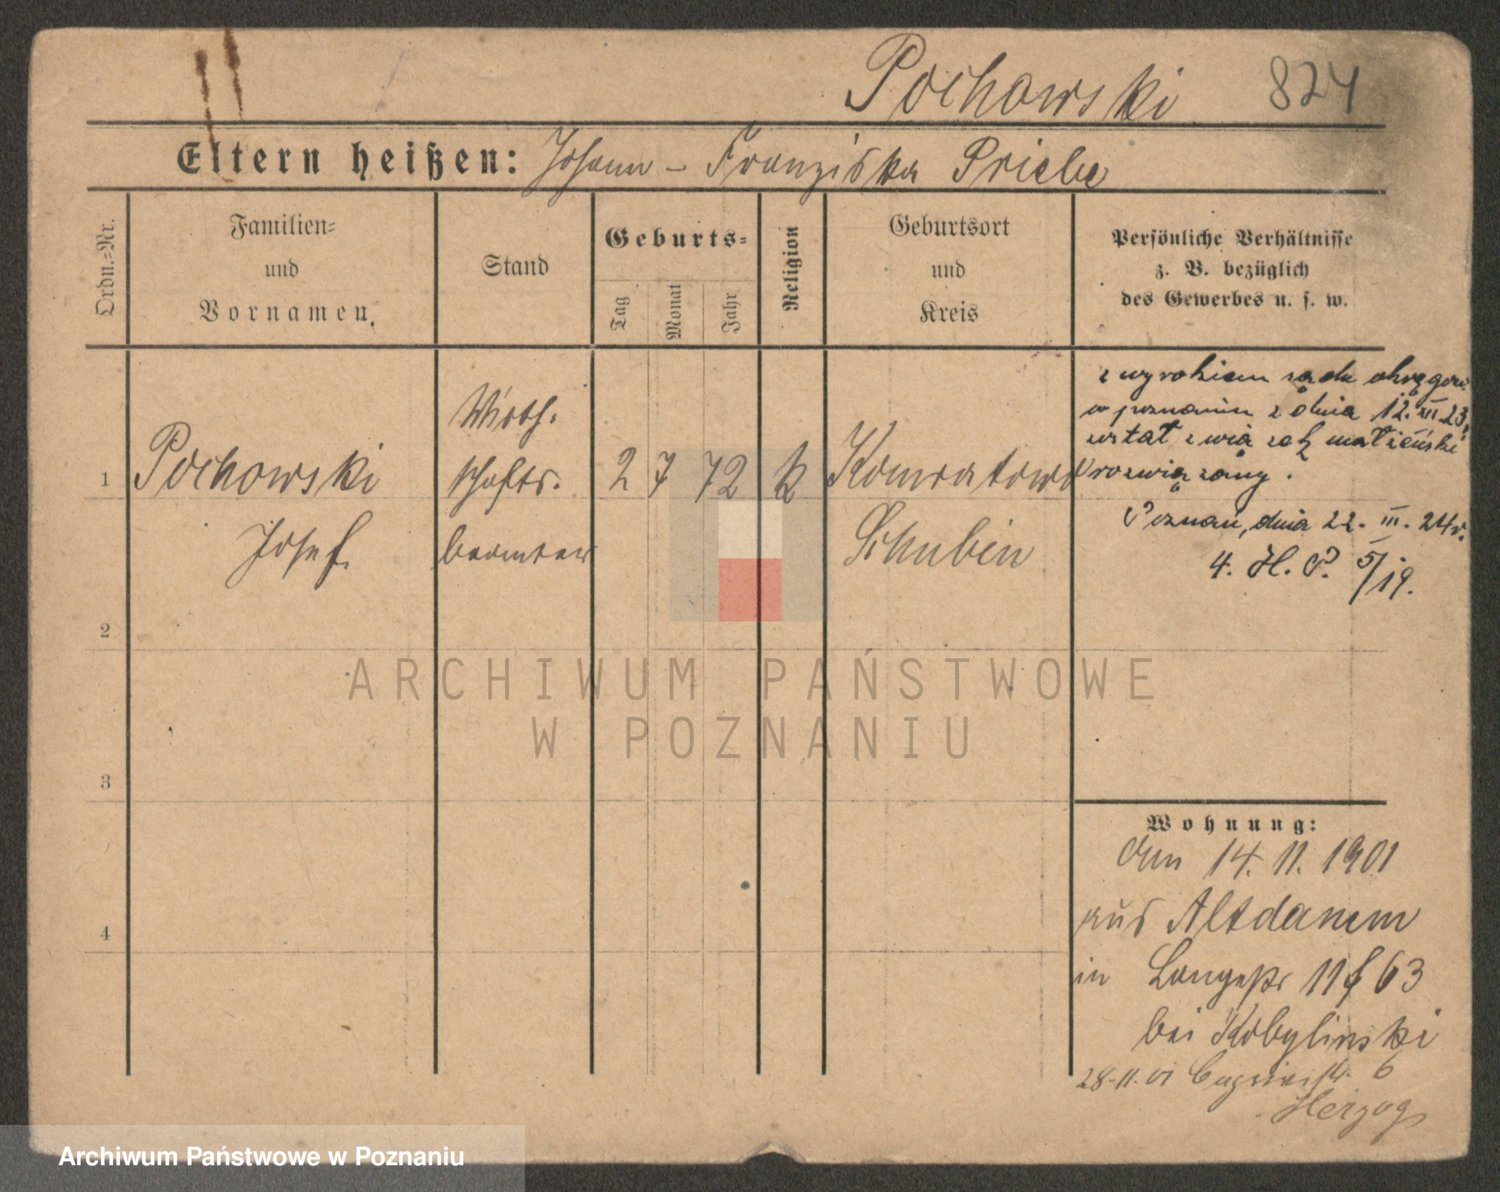 Pochowski 824
Eltern heißen: Johann – Franziska Priebe
Ordn.=Nr.
Familien=
und
Vornamen.
Stand
Geburts=
Tag
Monat
Jahr
Religion
Geburtsort
und
Kreis
Persönliche Verhältnisse
z. B. bezüglich
des Gewerbes u. s. w.
1
Pochowski
Josef.
Wirth.
schafts.
beamter
2 7 72 k
Schubin
z wyrokiem sądu okręgow.
w poznaniu z dnia 12. III 23.
został związek małżeński
rozwiązany.
Poznań, dnia 22. III. 24r.
4. H. P. 5/19.
2
3
4
Wohnung:
am 14. 11. 1901
aus Altdamm
in Langestr 11 63
bei Kobylinski
28.11.01 6
Herzog
ARCHIWUM PAŃSTWOWE
W POZNANIU
Archiwum Państwowe w Poznaniu